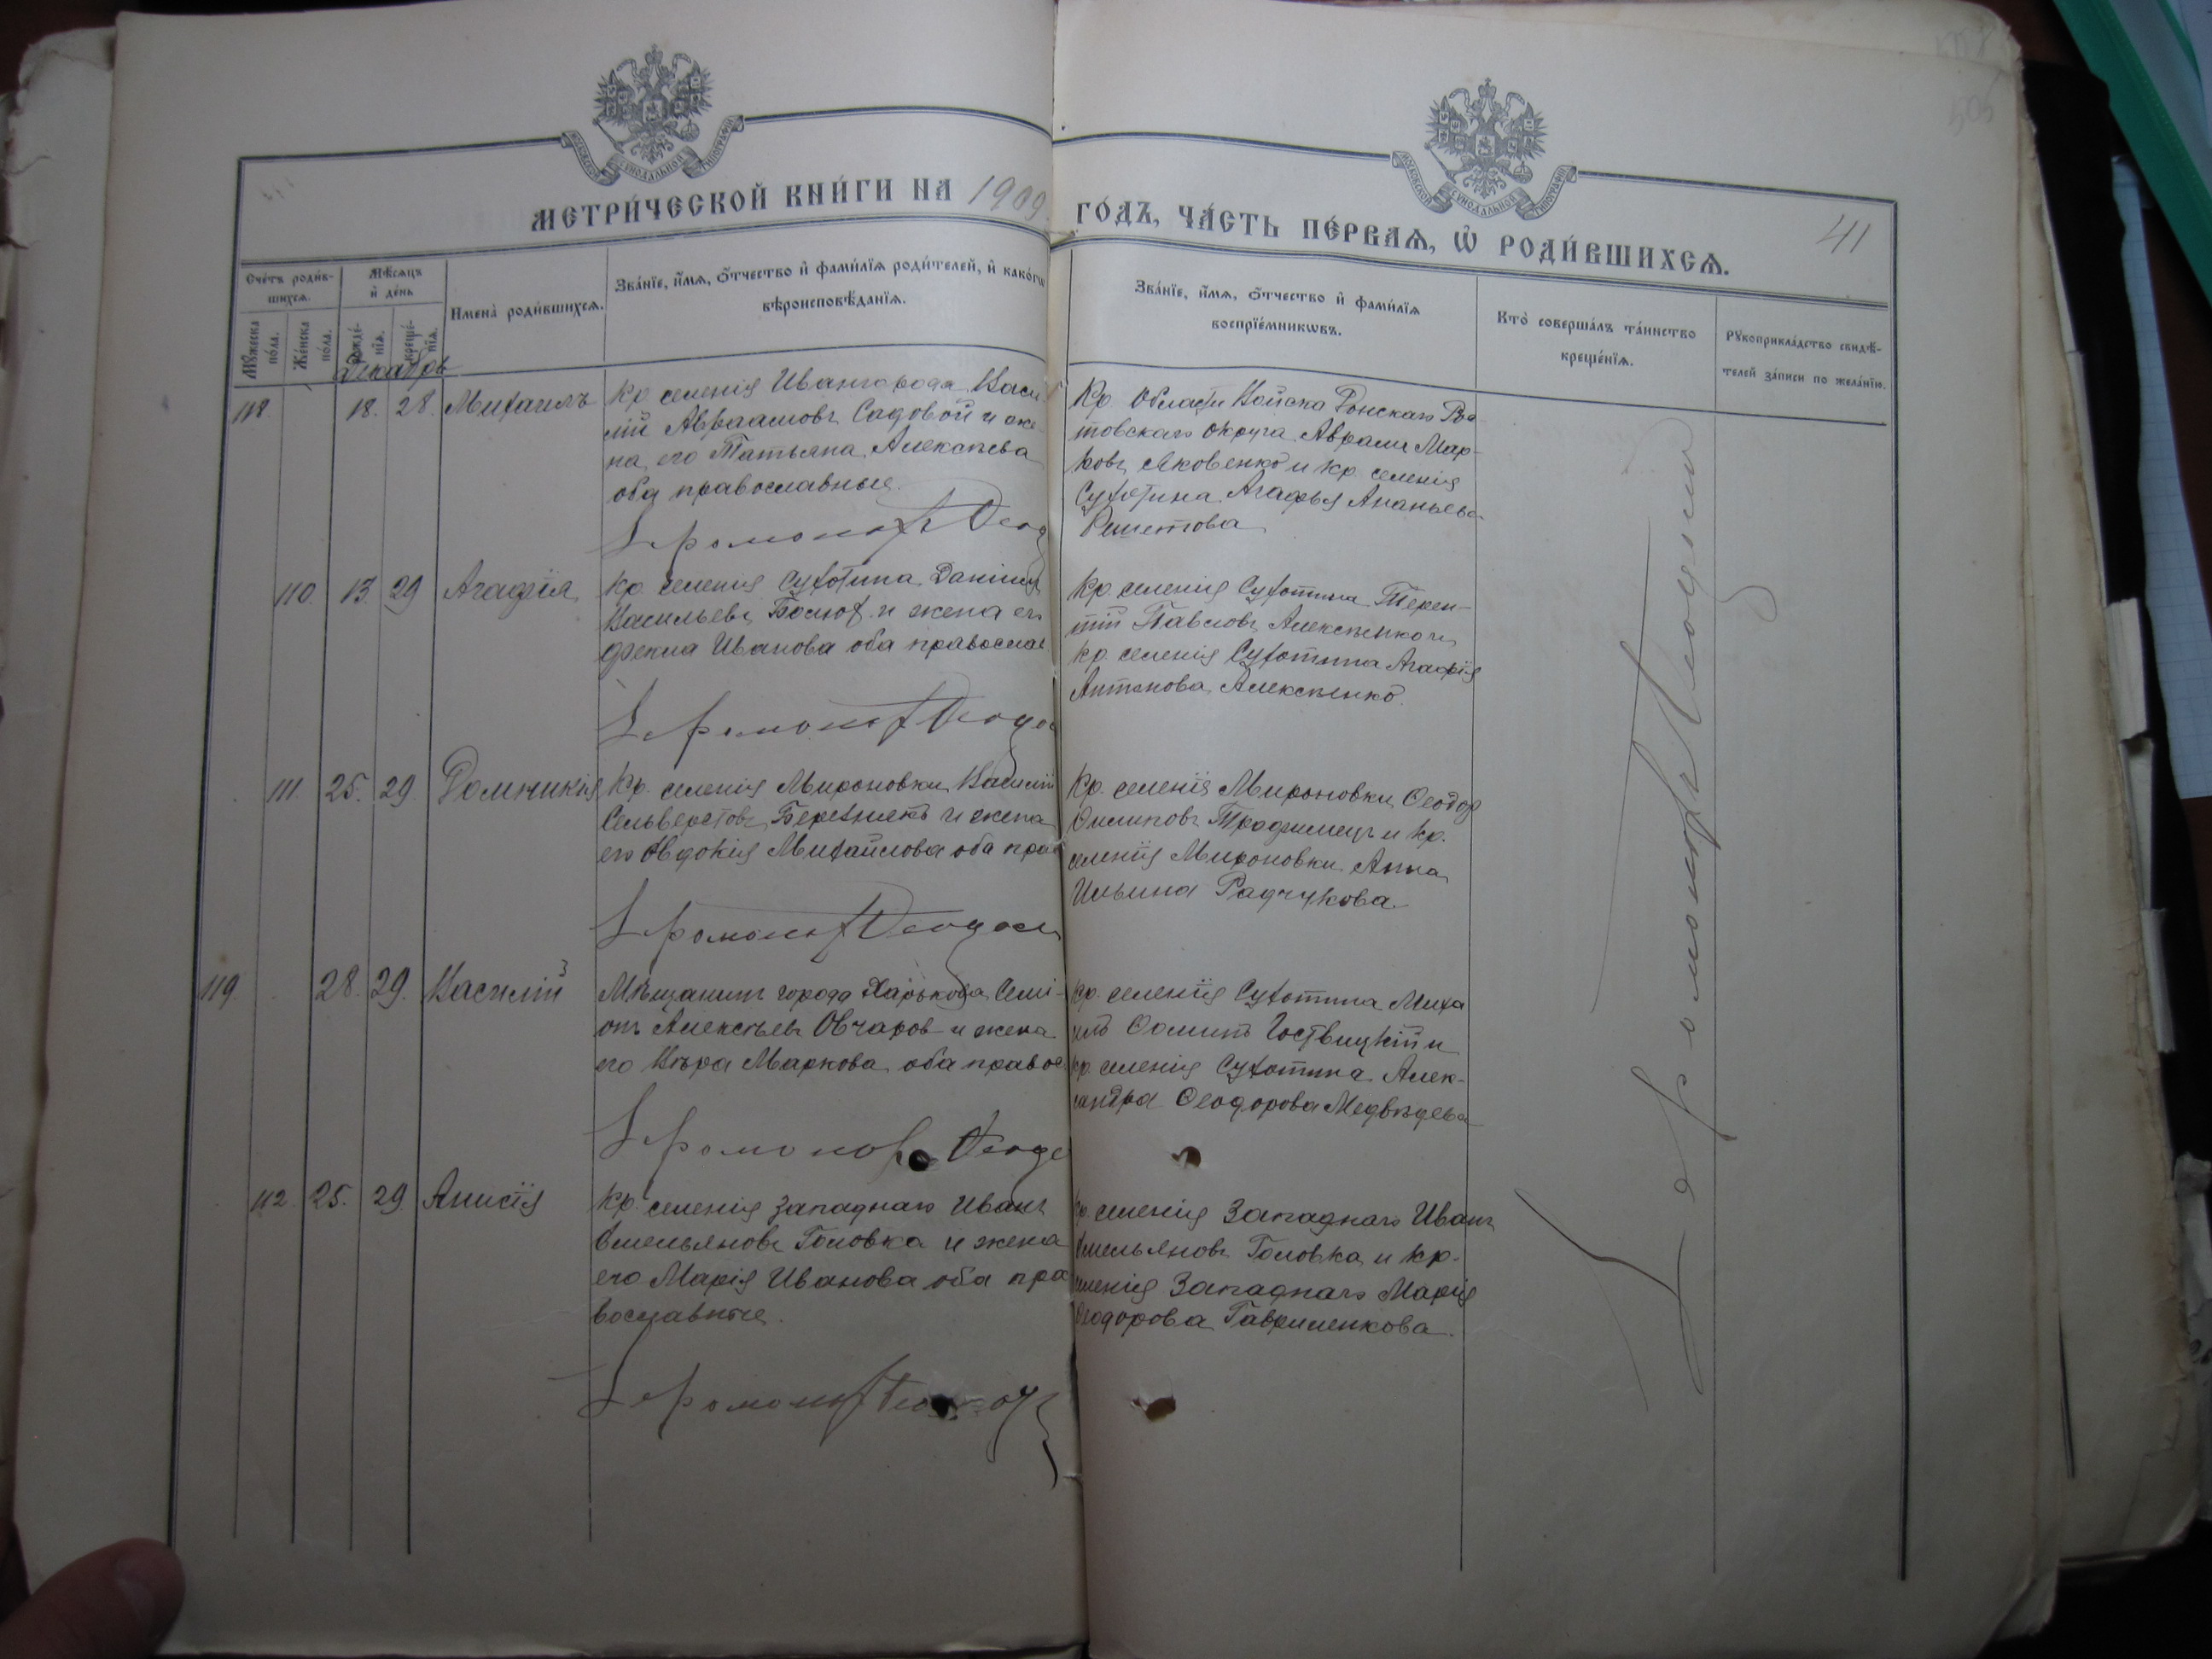 МОСКОВСКОЙ СѴНОДАЛЬНОЙ ТИПОГРАФІИ
МОСКОВСКОЙ СѴНОДАЛЬНОЙ ТИПОГРАФІИ
МЕТРИ́ЧЕСКОЙ КНИ́ГИ НА 1909
ГО́ДЪ, ЧА́СТЬ ПЕ́РВАѦ, Ѡ҆ РОДИ́ВШИХСѦ.
41
Сче́тъ роди́в-
шихсѧ.
Мѣ́сяцъ
и҆ де́нь
Мꙋ́жеска
по́ла.
Же́нска
по́ла.
рожде́-
нїѧ.
креще́-
нїѧ.
Имена̀ роди́вшихсѧ.
Зва́нїе, и҆́мѧ, ѻ҆́тчество и҆ фами́лїѧ роди́телей, и҆ како́гѡ
вѣроисповѣ́данїѧ.
Зва́нїе, и҆́мѧ, ѻ҆́тчество и҆ фами́лїѧ
воспрїе́мникѡвъ.
Кто̀ соверша́лъ та́инство
креще́нїѧ.
Рꙋкоприкла́дство свидѣ́-
телей за́писи по жела́нїю.
Декабрь
118. 18. 28. Михаилъ
Кр. селенія Ивангорода Васи
лій Авраамовъ Садовой и же-
на его Татьяна Алексѣева
оба православные.
Іеромонахъ Ѳеод
Кр. Области Войска Донскаго Рос-
товскаго округа Аврамъ Мар-
ковъ Яковенко и кр. селенія
Сухотина Агафья Ананьева
Решетова
110. 13. 29 Агафія
Кр. селенія Сухотина Даніилъ
Васильевъ и жена его
Фекла Иванова оба православ
Іеромонахъ Ѳеодос
Кр. селенія Сухотина Терен-
тій Павловъ Алексѣенко и
кр. селенія Сухотина Агафія
Антонова Алексѣенко.
111. 25. 29. Домникія
Кр. селенія Мироновки Василій
Сельверстовъ и жена
его Евдокія Михайлова оба прав
Іеромонахъ Ѳеодосі
Кр. селенія Мироновки Ѳеодор
и кр.
селенія Мироновки Анна
Ильина Радчукова.
119. 28. 29. Василій
Мѣщанинъ города Харькова Семі-
онъ Алексѣевъ Овчаров и жена
его Вѣра Маркова оба правос
Іеромонах Ѳеодо
кр. селенія Сухотина Миха
илъ Ѳоминъ Гоствицкій и
кр. селенія Сухотина Алек-
сандра Ѳеодорова Медвѣдева
112. 25. 29. Анисія
Кр. селенія Западнаго Иванъ
Омельяновъ Головка и жена
его Марія Иванова оба пра
вославные.
Іеромонах
кр. селенія Западнаго Иванъ
Омельяновъ Головка и кр.
селенія Западнаго Марія
Ѳеодорова Гавриленкова.
Іеромонахъ Ѳеодосій